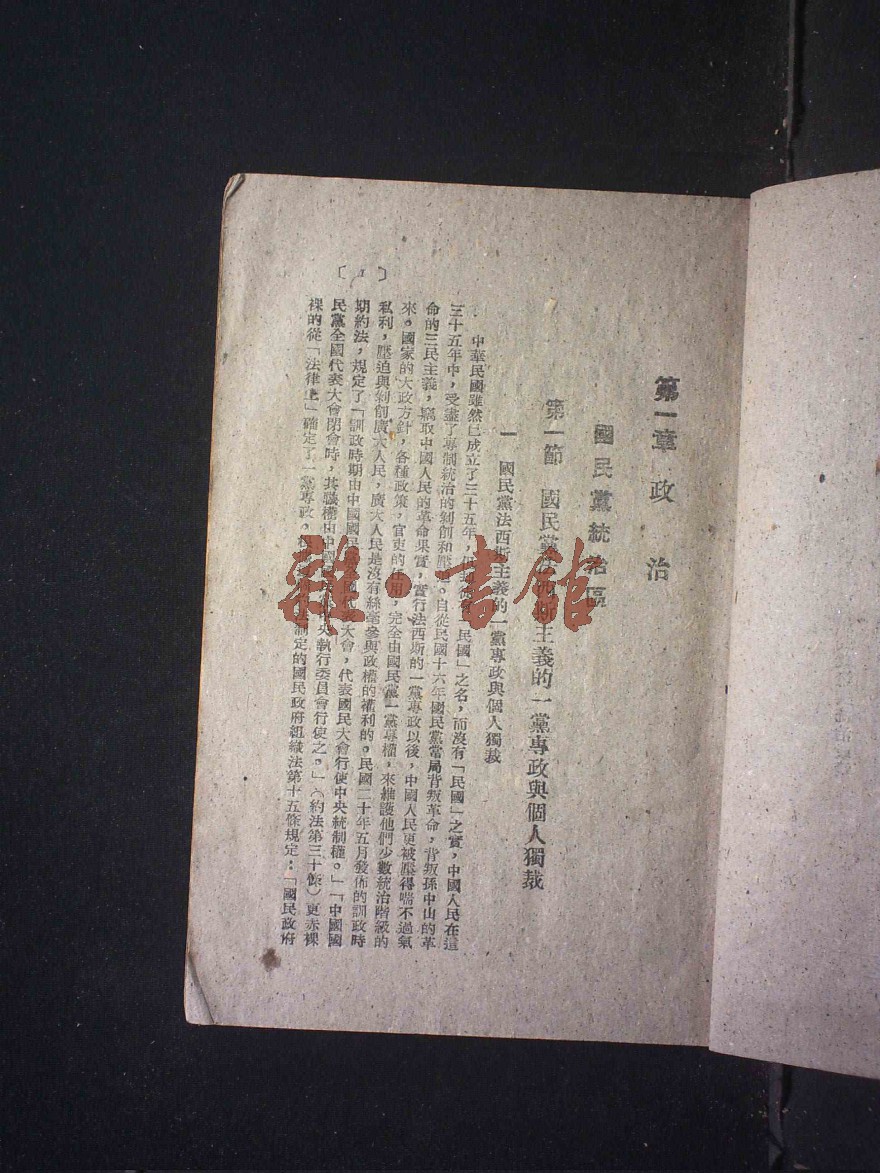 第一章 政治
國民黨統治區
第一節 國民黨法西斯主義的一黨專政與個人獨裁
一 國民黨法西斯主義的一黨專政與個人獨裁
中華民國雖然已成立了三十五年，但「民國」之名，而沒有「民國」之實，中國人民在這
三十五年中，受盡了專制統治的剝削和壓。自從民國十六年國民黨當局背叛革命，背叛孫中山的革
命的三民主義，竊取中國人民的革命果實，實行法西斯的一黨專政以後，中國人民更被壓得喘不過氣
來。國家的大政方針，各種政策，官吏的任用，完全由國民黨一黨專權，來維護他們少數統治階級的
私利，壓迫與剝削廣大人民，廣大人民是沒有絲毫參與政權的權利的。民國二十年五月發佈的訓政時
期約法，規定了「訓政時期由中國國民黨全國代表大會，代表國民大會行使中央統制權。」「中國國
民黨全國代表大會閉會時，其職權由中國央執行委員會行使之。」（約法第三十條）更赤裸
裸的從「法律上」確定了一黨專政，法制定的國民政府組織法第十五條規定：「國民政府
〔1〕
雜·書館